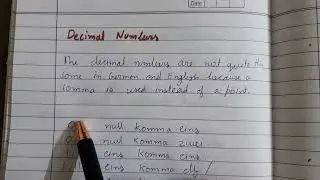 Date
Decimal Numbers
The decimal numbers are not quite the
same in German and English because a
comma is used instead of a point.
null komma eins
null komma zwei
eins komma eins
eins komma elf /